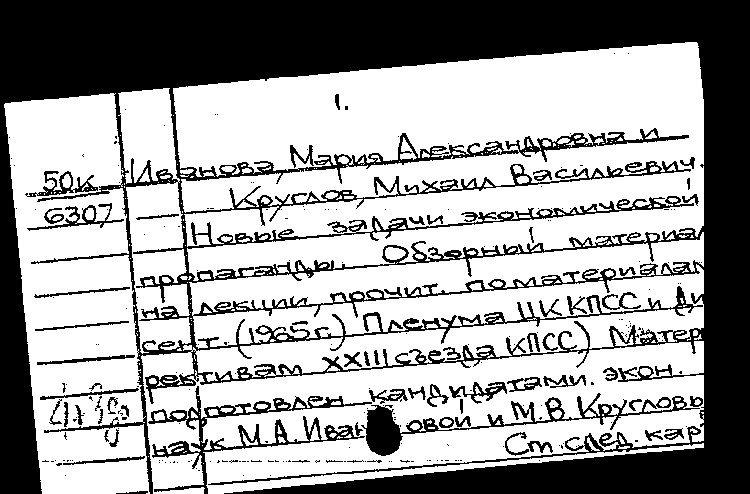 1.
50к Иванова, Мария Александровна и
6307 Круглов, Михаил Васильевич.
Новые задачи экономической
пропаганды. Обзорный материал
на лекции, прочит. по материалам
сент. (1965 г.) Пленума ЦК КПСС и Ди
рективам XXIII съезда КПСС) Матер
подготовлен кандидатами. экон.
наук М.А. Ивановой и М.В. Кругловы
См. след. кар